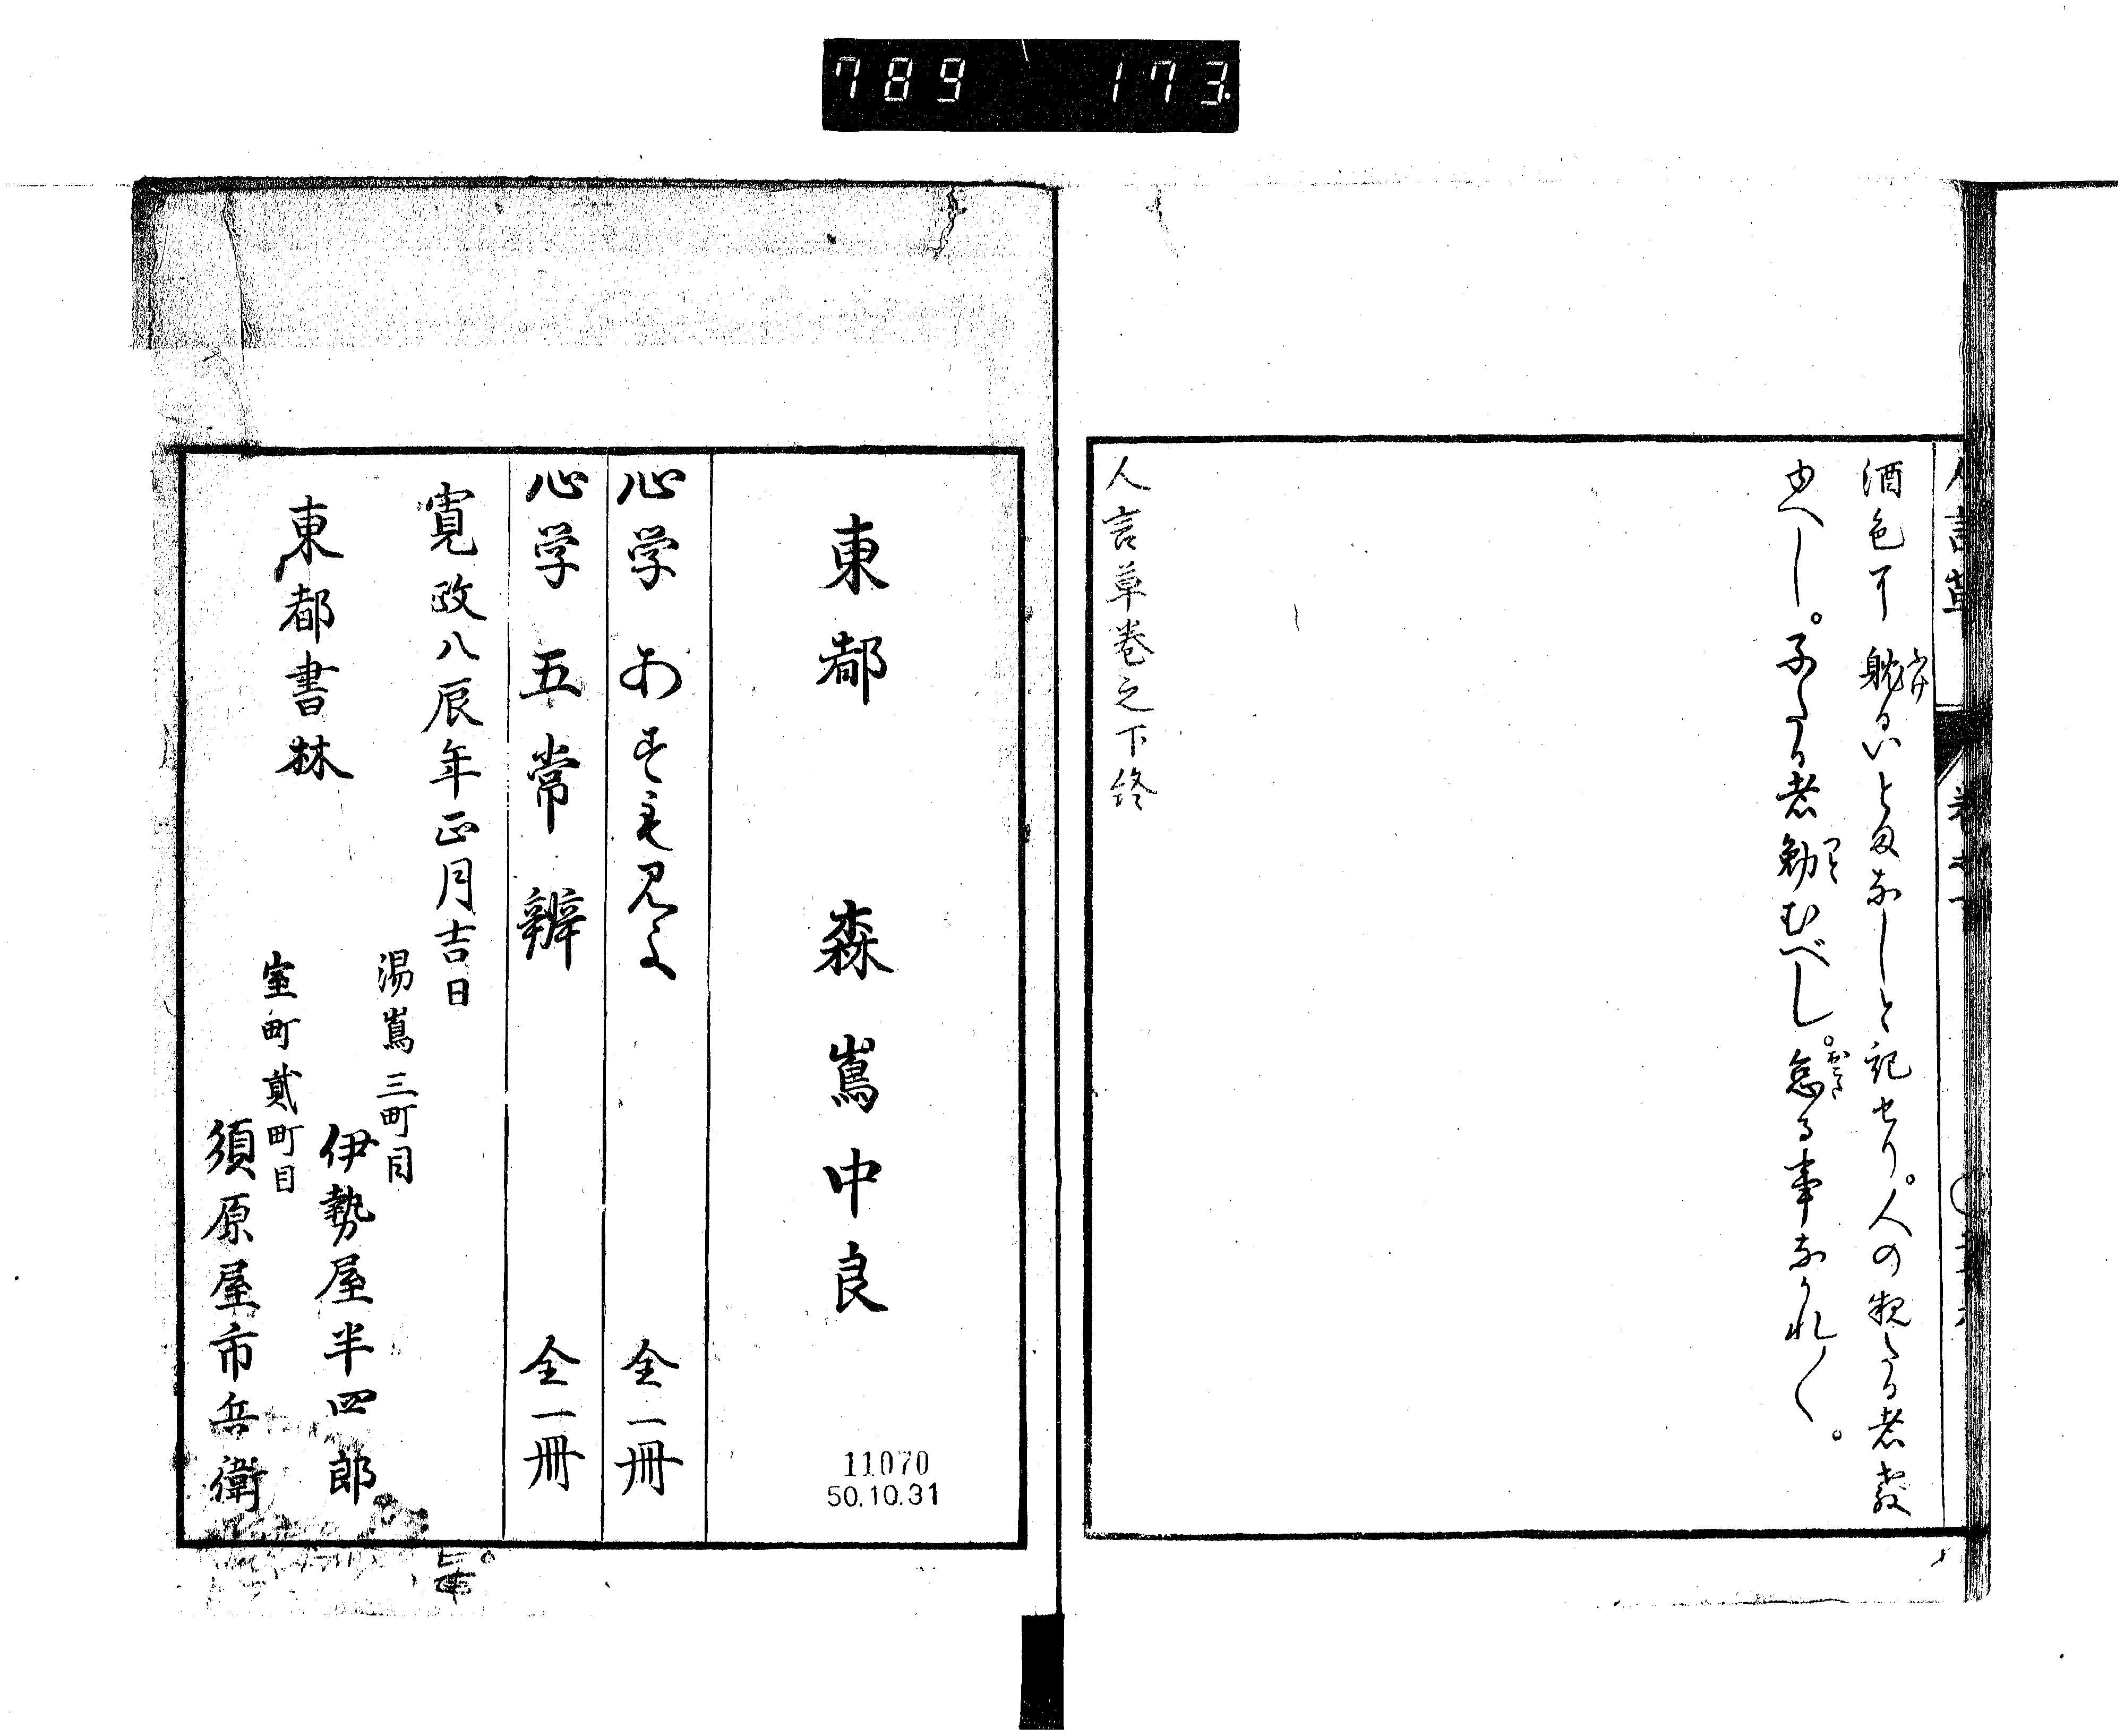 789 173
酒色に躭るいとまなしと記せり。人の親たる者教
ゆべし。子たる者勤むべし。怠る事なかれ〱。
人言草巻之下終
東都 森嶌中良
心学 全一冊
心学五常辨 全一冊
寛政八辰年正月吉日
東都書林
湯嶌三町目
伊勢屋半四郎
室町貳町目
須原屋市兵衛
11070
50.10.31